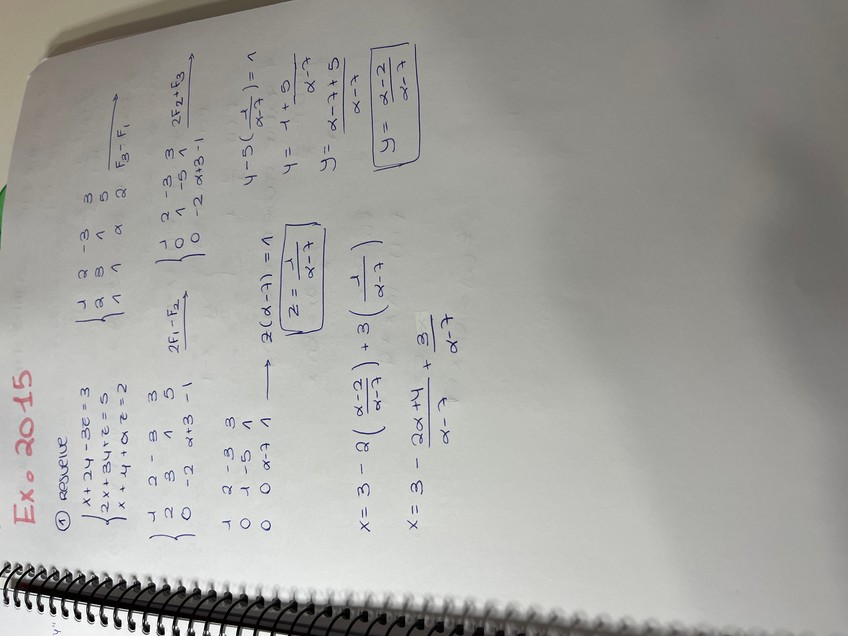 Ex. 2015
① Resuelve
{ x + 2y - 3z = 3
2x + 3y + z = 5
x + y + αz = 2
{ 1 2 -3 3
2 3 1 5
1 1 α 2 F₃ - F₁ →
{ 1 2 -3 3
2 3 1 5
0 -2 α+3 -1
2F₁ - F₂ →
{ 1 2 -3 3
0 1 -5 1
0 -2 α+3 -1
2F₂ + F₃ →
1 2 -3 3
0 1 -5 1
0 0 α-7 1 → z(α-7) = 1
z = 1/(α-7)
y - 5(1/(α-7)) = 1
y = 1 + 5/(α-7)
y = (α-7+5)/(α-7)
y = (α-2)/(α-7)
x = 3 - 2((α-2)/(α-7)) + 3(1/(α-7))
x = 3 - (2α+4)/(α-7) + 3/(α-7)